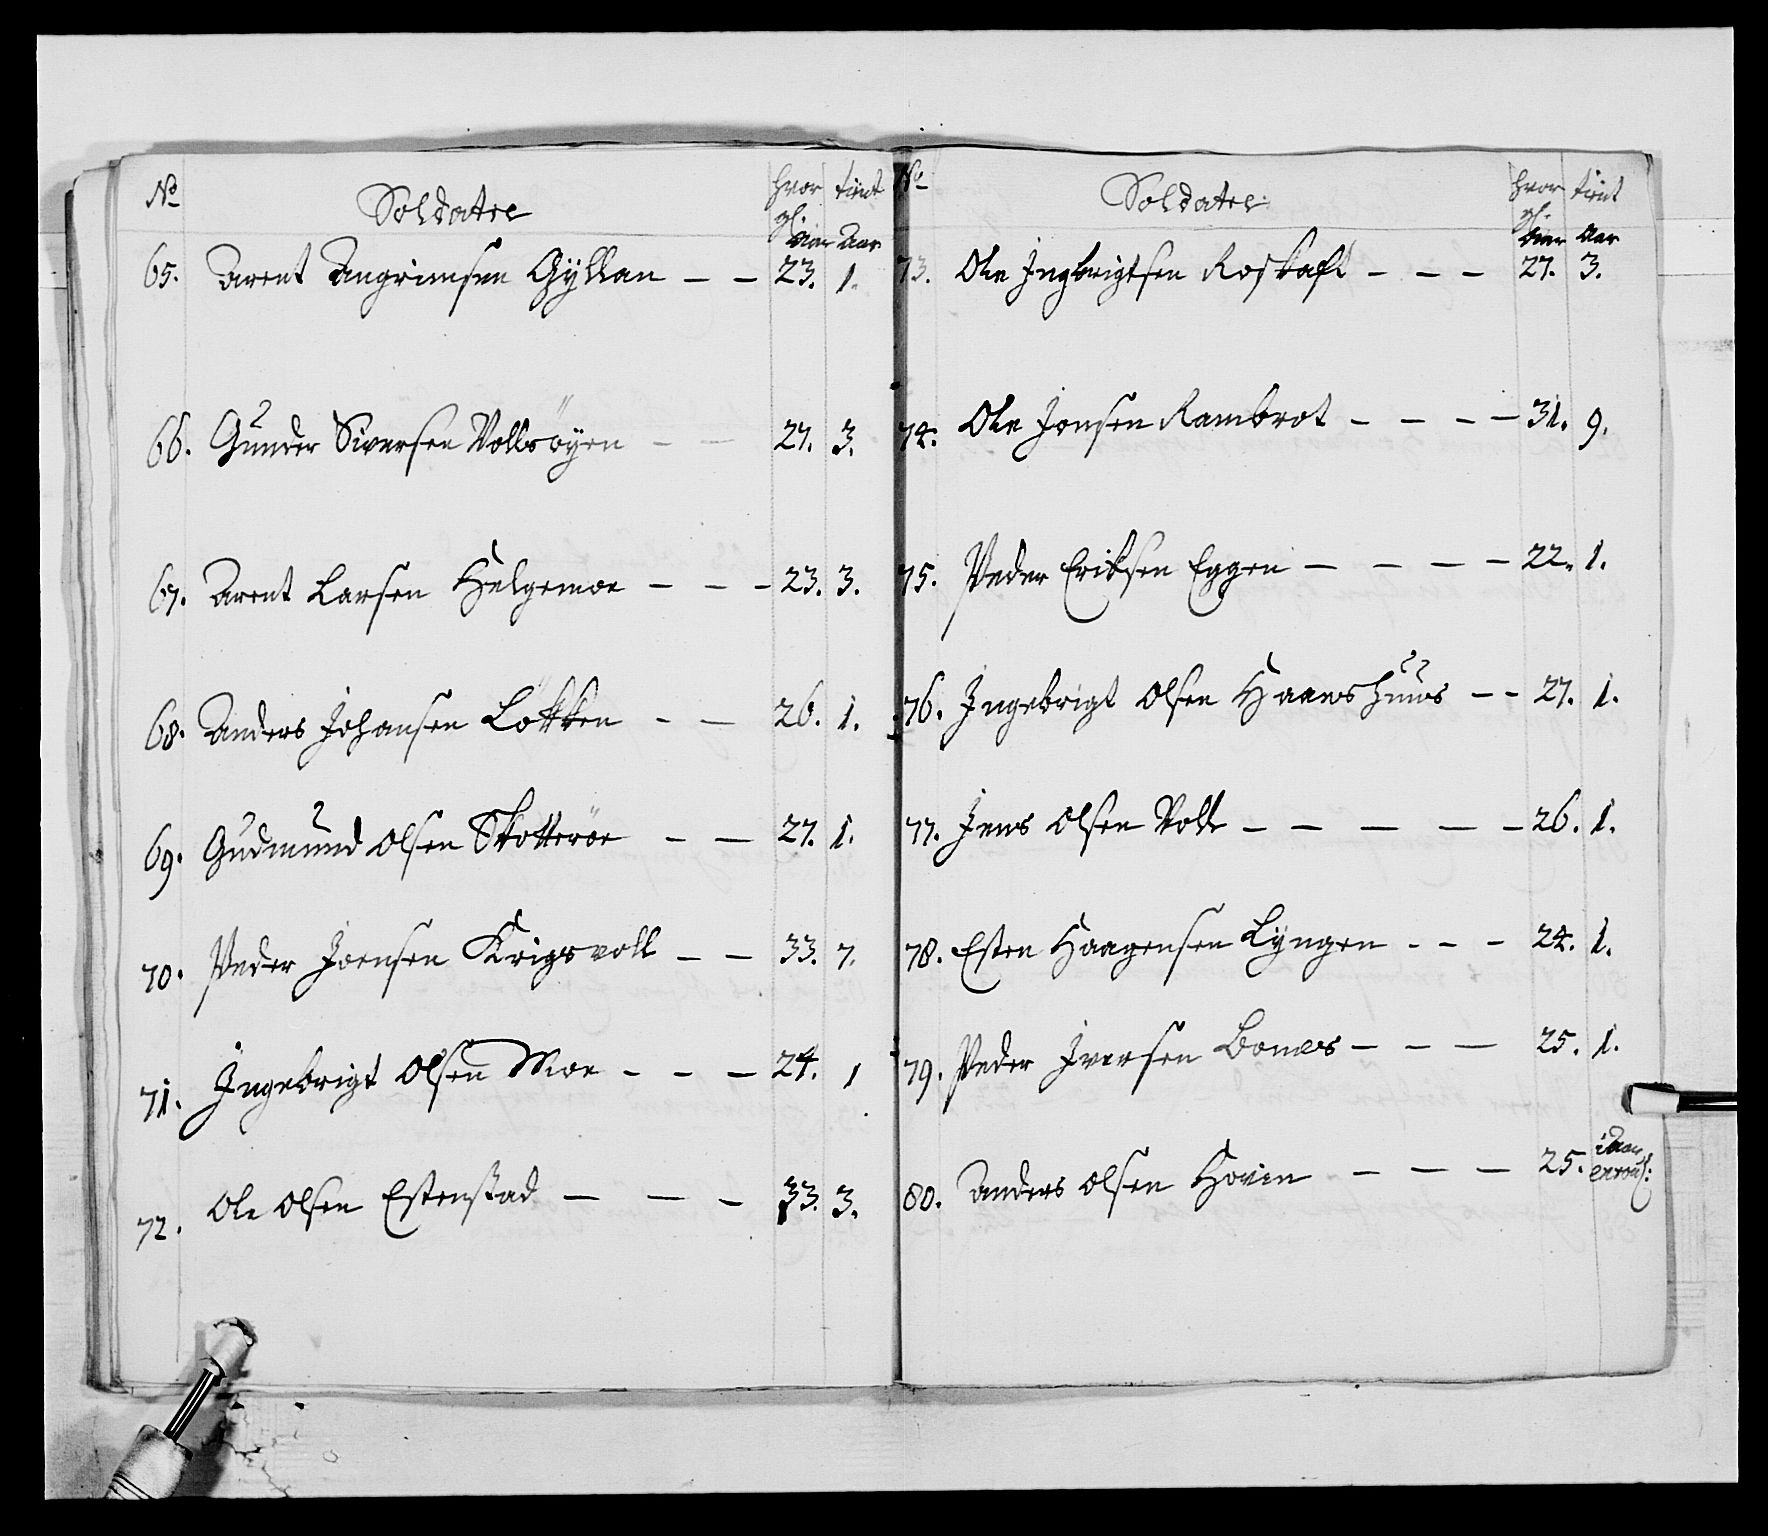 No Soldater hvor gl. Aar tient Aar
65. Arent Angrimsen Gyllan - - 23. 1.
66. Gunder Siversen Vollsöyen - - 27. 3.
67. Arent Larsen Helgemoe - - - 23. 3.
68. Anders Johansen Lökken - - 26. 1.
69. Gudmund Olsen Skotteröe - - 27. 1.
70. Peder Joensen Krigsvoll - - 33. 7.
71. Ingebrigt Olsen Moe - - - 24. 1
72. Ole Olsen Estenstad - - - 33. 3.
No Soldater hvor gl. Aar tient Aar
73. Ole Ingbrigtsen Roskaft - - - 27. 3.
74. Ole Jonsen Rambrot - - - - 31. 9.
75. Peder Eriksen Eggen - - - - 22. 1.
76. Ingebrigt Olsen Haanshuus - - 27. 1.
77. Jens Olsen Voll - - - - - 26. 1.
78. Esten Haagensen Lyngen - - - 24. 1.
79. Peder Iversen Bones - - - 25. 1.
80. Anders Olsen Hovin - - - 25. i Aar
enroul: